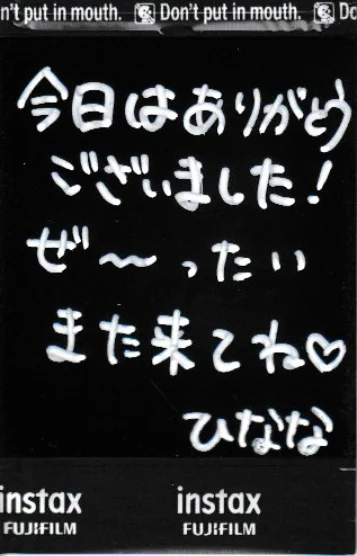 n't put in mouth. Don't put in mouth. Do
今日はありがとう
ございました!
ぜ〜ったい
また来てね♡
ひなな
instax instax
FUJIFILM FUJIFILM